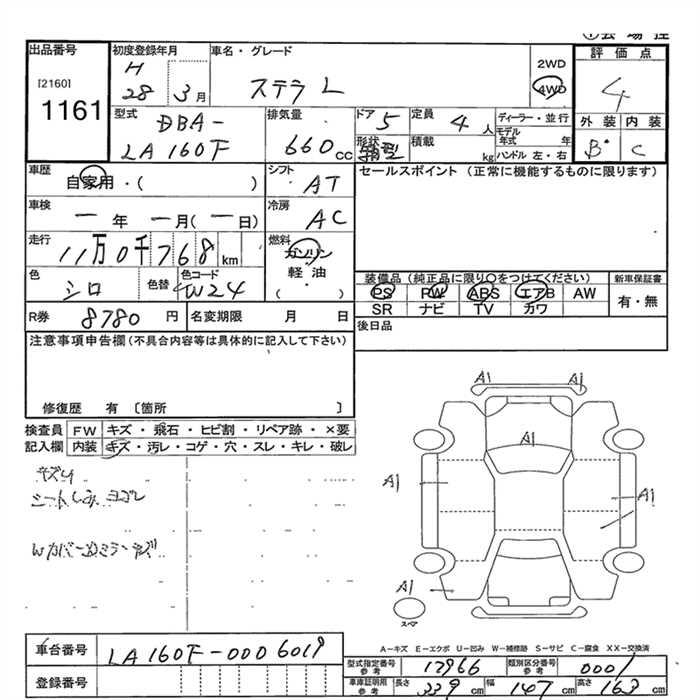 出品番号
[2160]
1161
初度登録年月
H
28 3月
車名・グレード
ステラ L
2WD
4WD
評価点
4
外装 内装
B・ C
型式
DBA-
LA160F
排気量
660 cc
ドア 5
形状
箱型
定員 4 人
積載 kg
ディーラー・並行
モデル
年式 年
ハンドル 左・右
車歴
自家用・( )
シフト
AT
セールスポイント (正常に機能するものに限ります)
車検
一年 一月(一日)
冷房
AC
走行
11万0千768km
燃料
ガソリン
軽油
・( )
色
シロ
色替
色コード
W24
装備品 (純正品に限り○をつけてください)
PS PW ABS エアB AW
SR ナビ TV カワ
新車保証書
有・無
R券 8780 円
名変期限 月 日
後日品
注意事項申告欄(不具合内容等は具体的に記入して下さい)
修復歴 有 〔箇所 〕
検査員 FW キズ・飛石・ヒビ割・リペア跡・×要
記入欄 内装 キズ・汚レ・コゲ・穴・スレ・キレ・破レ
シートしみ ヨゴレ
A1 A1
A1
A1
A1
A1
スペア
A-キズ E-エクボ U-凹み W-補修跡 S-サビ C-腐食 XX-交換済
車台番号 LA160F-0006019
登録番号
型式指定番号
参考
17966
類別区分番号
参考
0001
車庫証明用
参考
長さ 339 cm 幅 147 cm 高さ 163 cm